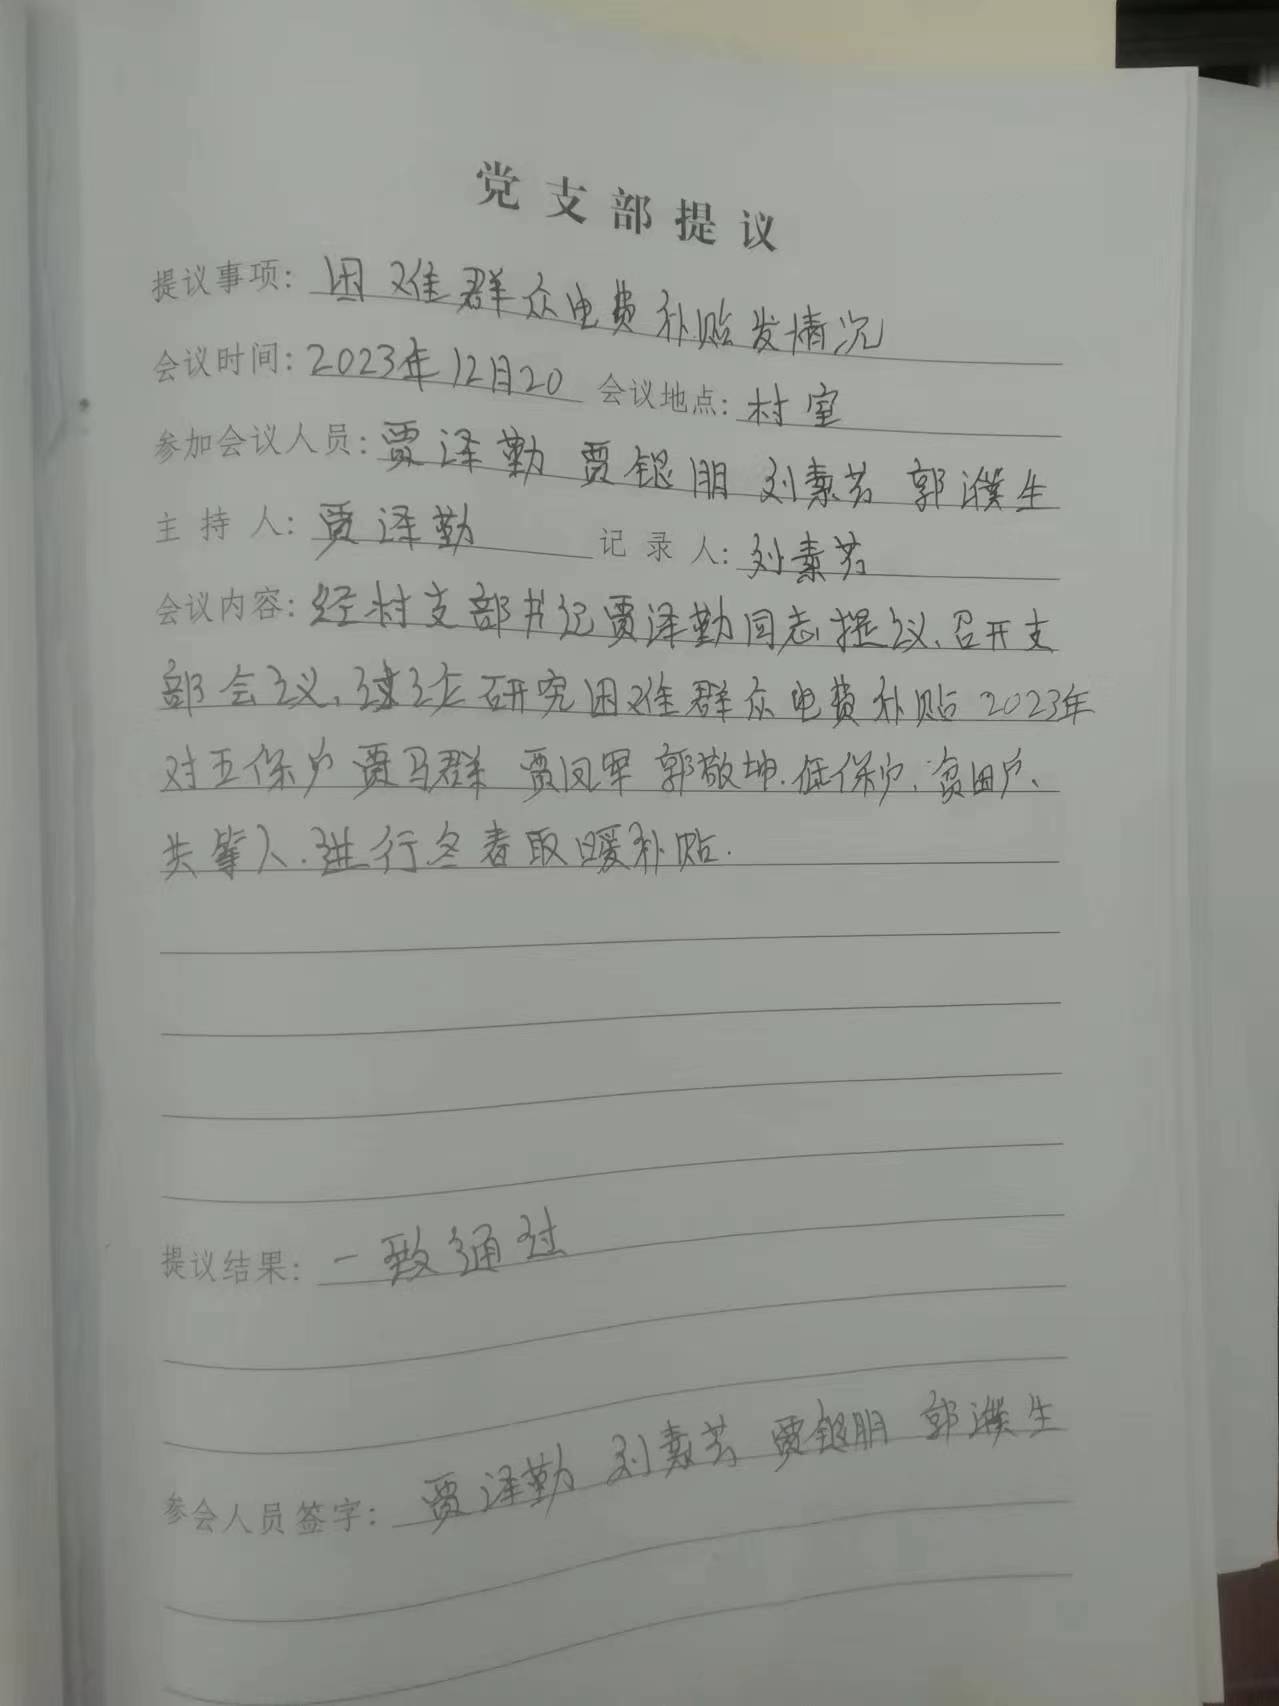 党支部提议
提议事项: 困难群众电费补贴发情况
会议时间: 2023年12月20 会议地点: 村室
参加会议人员: 贾泽勤 贾银朋 刘素芳 郭濮生
主持人: 贾泽勤 记录人: 刘素芳
会议内容: 经村支部书记贾泽勤同志提议、召开支
部会议、讨论研究困难群众电费补贴2023年
对五保户贾马群 贾凤军 郭敬坤、低保户、贫困户、
共等人、进行冬春取暖补贴.
提议结果: 一致通过
参会人员签字: 贾泽勤 刘素芳 贾银朋 郭濮生